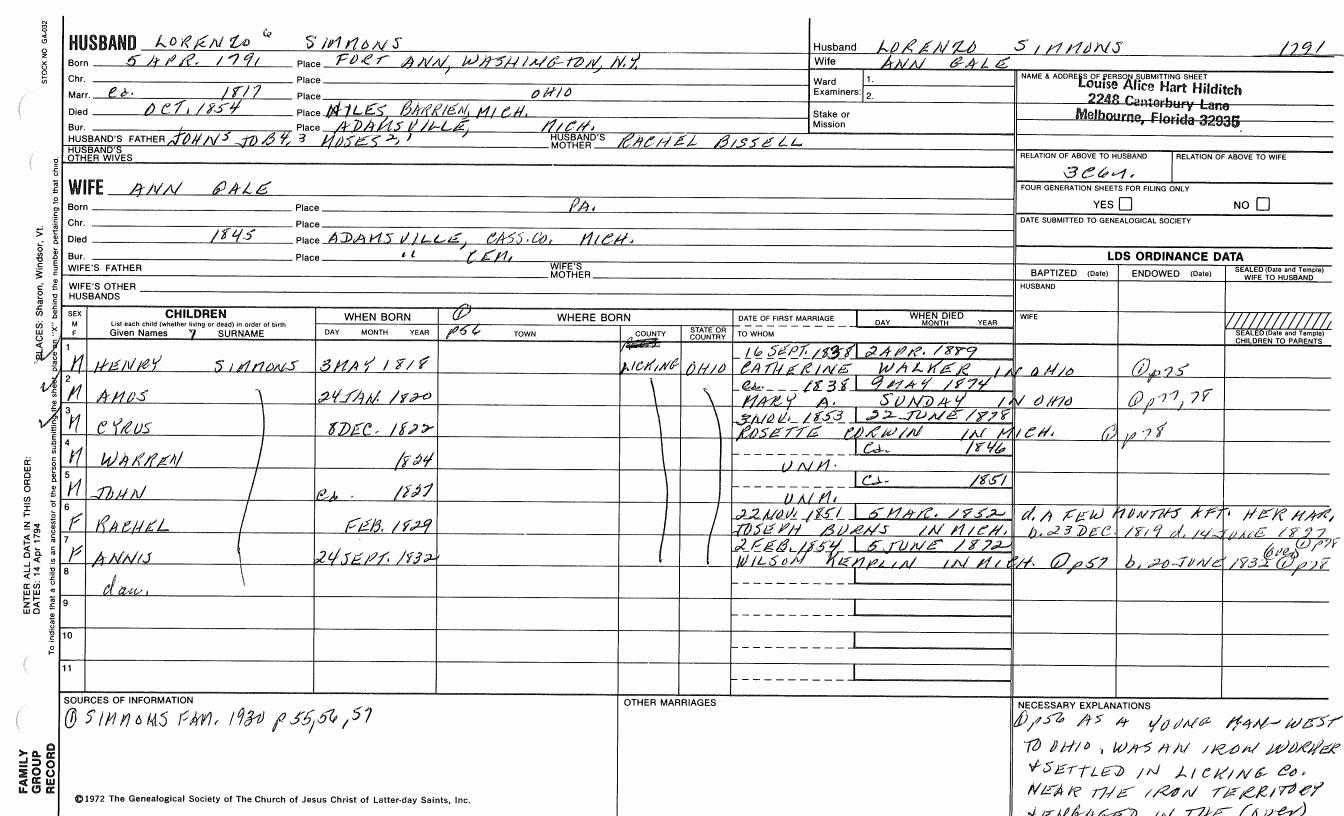 STOCK NO GA-032
HUSBAND LORENZO 6 SIMMONS
Born 5 APR. 1791 Place FORT ANN, WASHINGTON, N.Y.
Chr. Place
Marr. ca. 1817 Place OHIO
Died OCT. 1854 Place NILES, BARRIEN, MICH.
Bur. Place ADAMSVILLE, MICH.
HUSBAND'S FATHER JOHN5 JOB4,3 MOSES2,1 HUSBAND'S MOTHER RACHEL BISSELL
HUSBAND'S OTHER WIVES
Husband LORENZO SIMMONS 1791
Wife ANN GALE
Ward Examiners: 1.
2.
Stake or Mission
NAME & ADDRESS OF PERSON SUBMITTING SHEET
Louise Alice Hart Hilditch
2248 Canterbury Lane
Melbourne, Florida 32935
RELATION OF ABOVE TO HUSBAND RELATION OF ABOVE TO WIFE
3C6r.
FOUR GENERATION SHEETS FOR FILING ONLY
YES NO
DATE SUBMITTED TO GENEALOGICAL SOCIETY
WIFE ANN GALE
Born Place PA.
Chr. Place
Died 1845 Place ADAMSVILLE, CASS. CO. MICH.
Bur. Place " CEM.
WIFE'S FATHER WIFE'S MOTHER
WIFE'S OTHER HUSBANDS
LDS ORDINANCE DATA
BAPTIZED (Date) ENDOWED (Date) SEALED (Date and Temple) WIFE TO HUSBAND
HUSBAND
WIFE
SEALED (Date and Temple) CHILDREN TO PARENTS
SEX M F CHILDREN WHEN BORN ① WHERE BORN DATE OF FIRST MARRIAGE WHEN DIED
List each child (whether living or dead) in order of birth
Given Names 7 SURNAME DAY MONTH YEAR p56 TOWN COUNTY STATE OR COUNTRY TO WHOM DAY MONTH YEAR
1 16 SEPT. 1838 2 APR. 1889
M HENRY SIMMONS 3 MAY 1818 LICKING OHIO CATHERINE WALKER IN OHIO ① p75
2 ca. 1838 9 MAY 1874
M AMOS 24 JAN. 1820 MARY A. SUNDAY IN OHIO ① p77, 78
3 3 NOV. 1853 22 JUNE 1878
M CYRUS 8 DEC. 1822 ROSETTE CORWIN IN MICH. ① p78
4 ca. 1846
M WARREN 1824 UNM.
5 ca. 1851
M JOHN ca. 1827 UNM.
6 22 NOV. 1851 5 MAR. 1852 d. A FEW MONTHS AFT. HER MAR.
F RACHEL FEB. 1829 JOSEPH BURNS IN MICH. b. 23 DEC. 1819 d. 14 JUNE 1897 ① p78
7 2 FEB. 1854 5 JUNE 1872 (over)
F ANNIS 24 SEPT. 1832 WILSON KEMPLIN IN MICH. ① p57 b. 20 JUNE 1832 ① p78
8 dau.
9
10
11
SOURCES OF INFORMATION
① SIMMONS FAM. 1930 p 55, 56, 57
OTHER MARRIAGES
NECESSARY EXPLANATIONS
① p56 AS A YOUNG MAN-WEST
TO OHIO, WAS AN IRON WORKER
+ SETTLED IN LICKING CO.
NEAR THE IRON TERRITORY
+ ENGAGED IN THE (over)
©1972 The Genealogical Society of The Church of Jesus Christ of Latter-day Saints, Inc.
FAMILY GROUP RECORD
ENTER ALL DATA IN THIS ORDER:
DATES: 14 Apr 1794
PLACES: Sharon, Windsor, Vt.
To indicate that a child is an ancestor of the person submitting the sheet, place an "X" behind the number pertaining to that child.